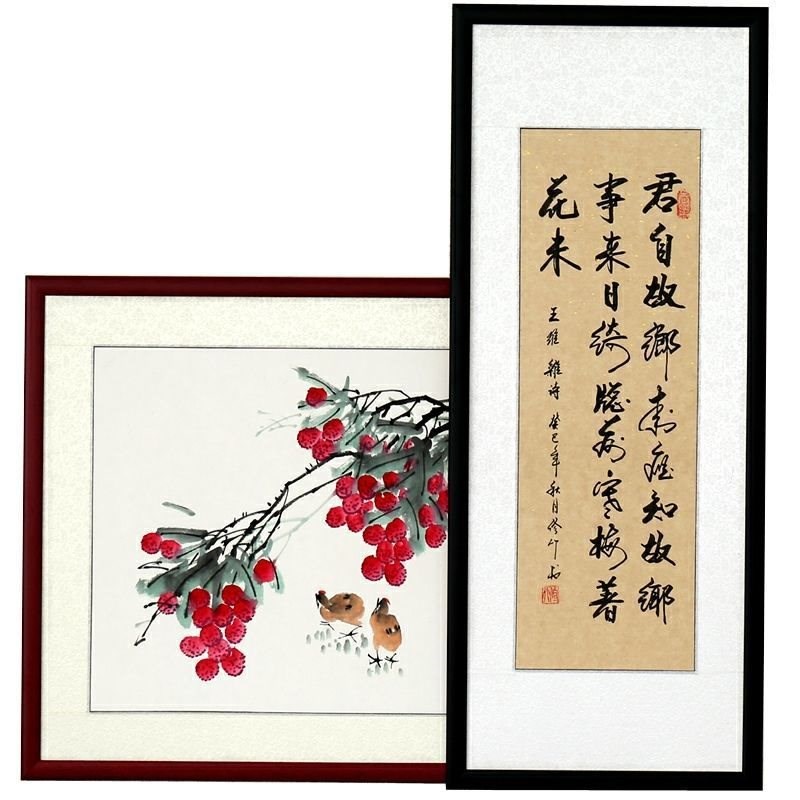 君自故鄉來應知故鄉
事來日綺窗前寒梅著
花未
王維 雜詩 癸巳年秋月